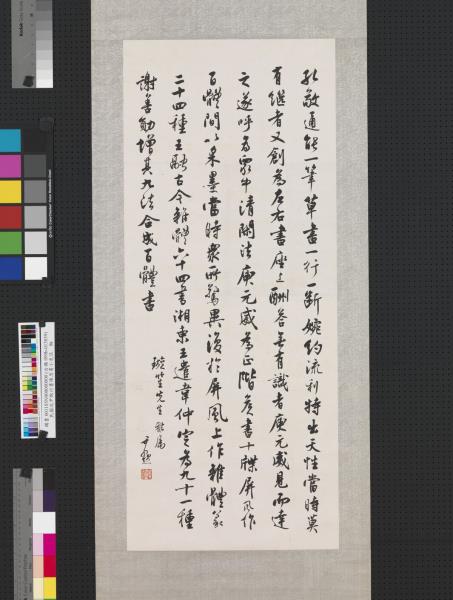 孔敬通能一筆草書一行一斷婉約流利特出天性當時莫
有繼者又創為左右書座上酬答無有識者庾元威見而達
之遂呼為眾中清閑法庾元威為正階侯書十牒屏風作
百體間以采墨當時眾所驚異復於屏風上作雜體篆
二十四種王融古今雜體六十四書湘東王遣韋仲定為九十一種
謝善勛增其九法合成百體書
先生雅屬
尹默